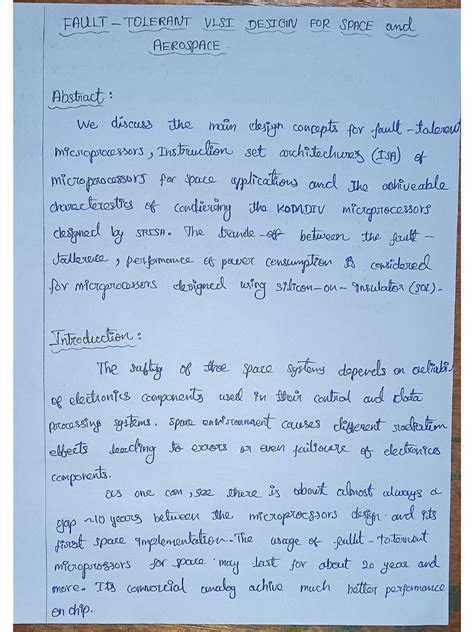 FAULT - TOLERANT VLSI DESIGIN FOR SPACE and
AEROSPACE.
Abstract :
We discuss the main design concepts for fault - tolerent
microprocessors, Instruction set architechures (ISA) of
microprocessors for space applications and the achiveable
characterestics of condiering the KOMDIV microprocessors
designed by SRISA. The trande - off between the fault -
tallereuse, performance of power consumption is considered
for microprocessors designed using silicon-on-insulator (SOI)-
Introducction :
The safty of the space systems depends on reliabi
of electronics components used in their control and data
processing systems. space environment causes different radiation
effects leading to errors or even failioure of electronics
components.
as one can, see there is about almost always a
gap ~10 years between the microprocssors design and its
first space implementation. The usage of fault - toternant
microprossors for space may last for about 20 year and
more. Its commercial analog achive much better performance
on chip.